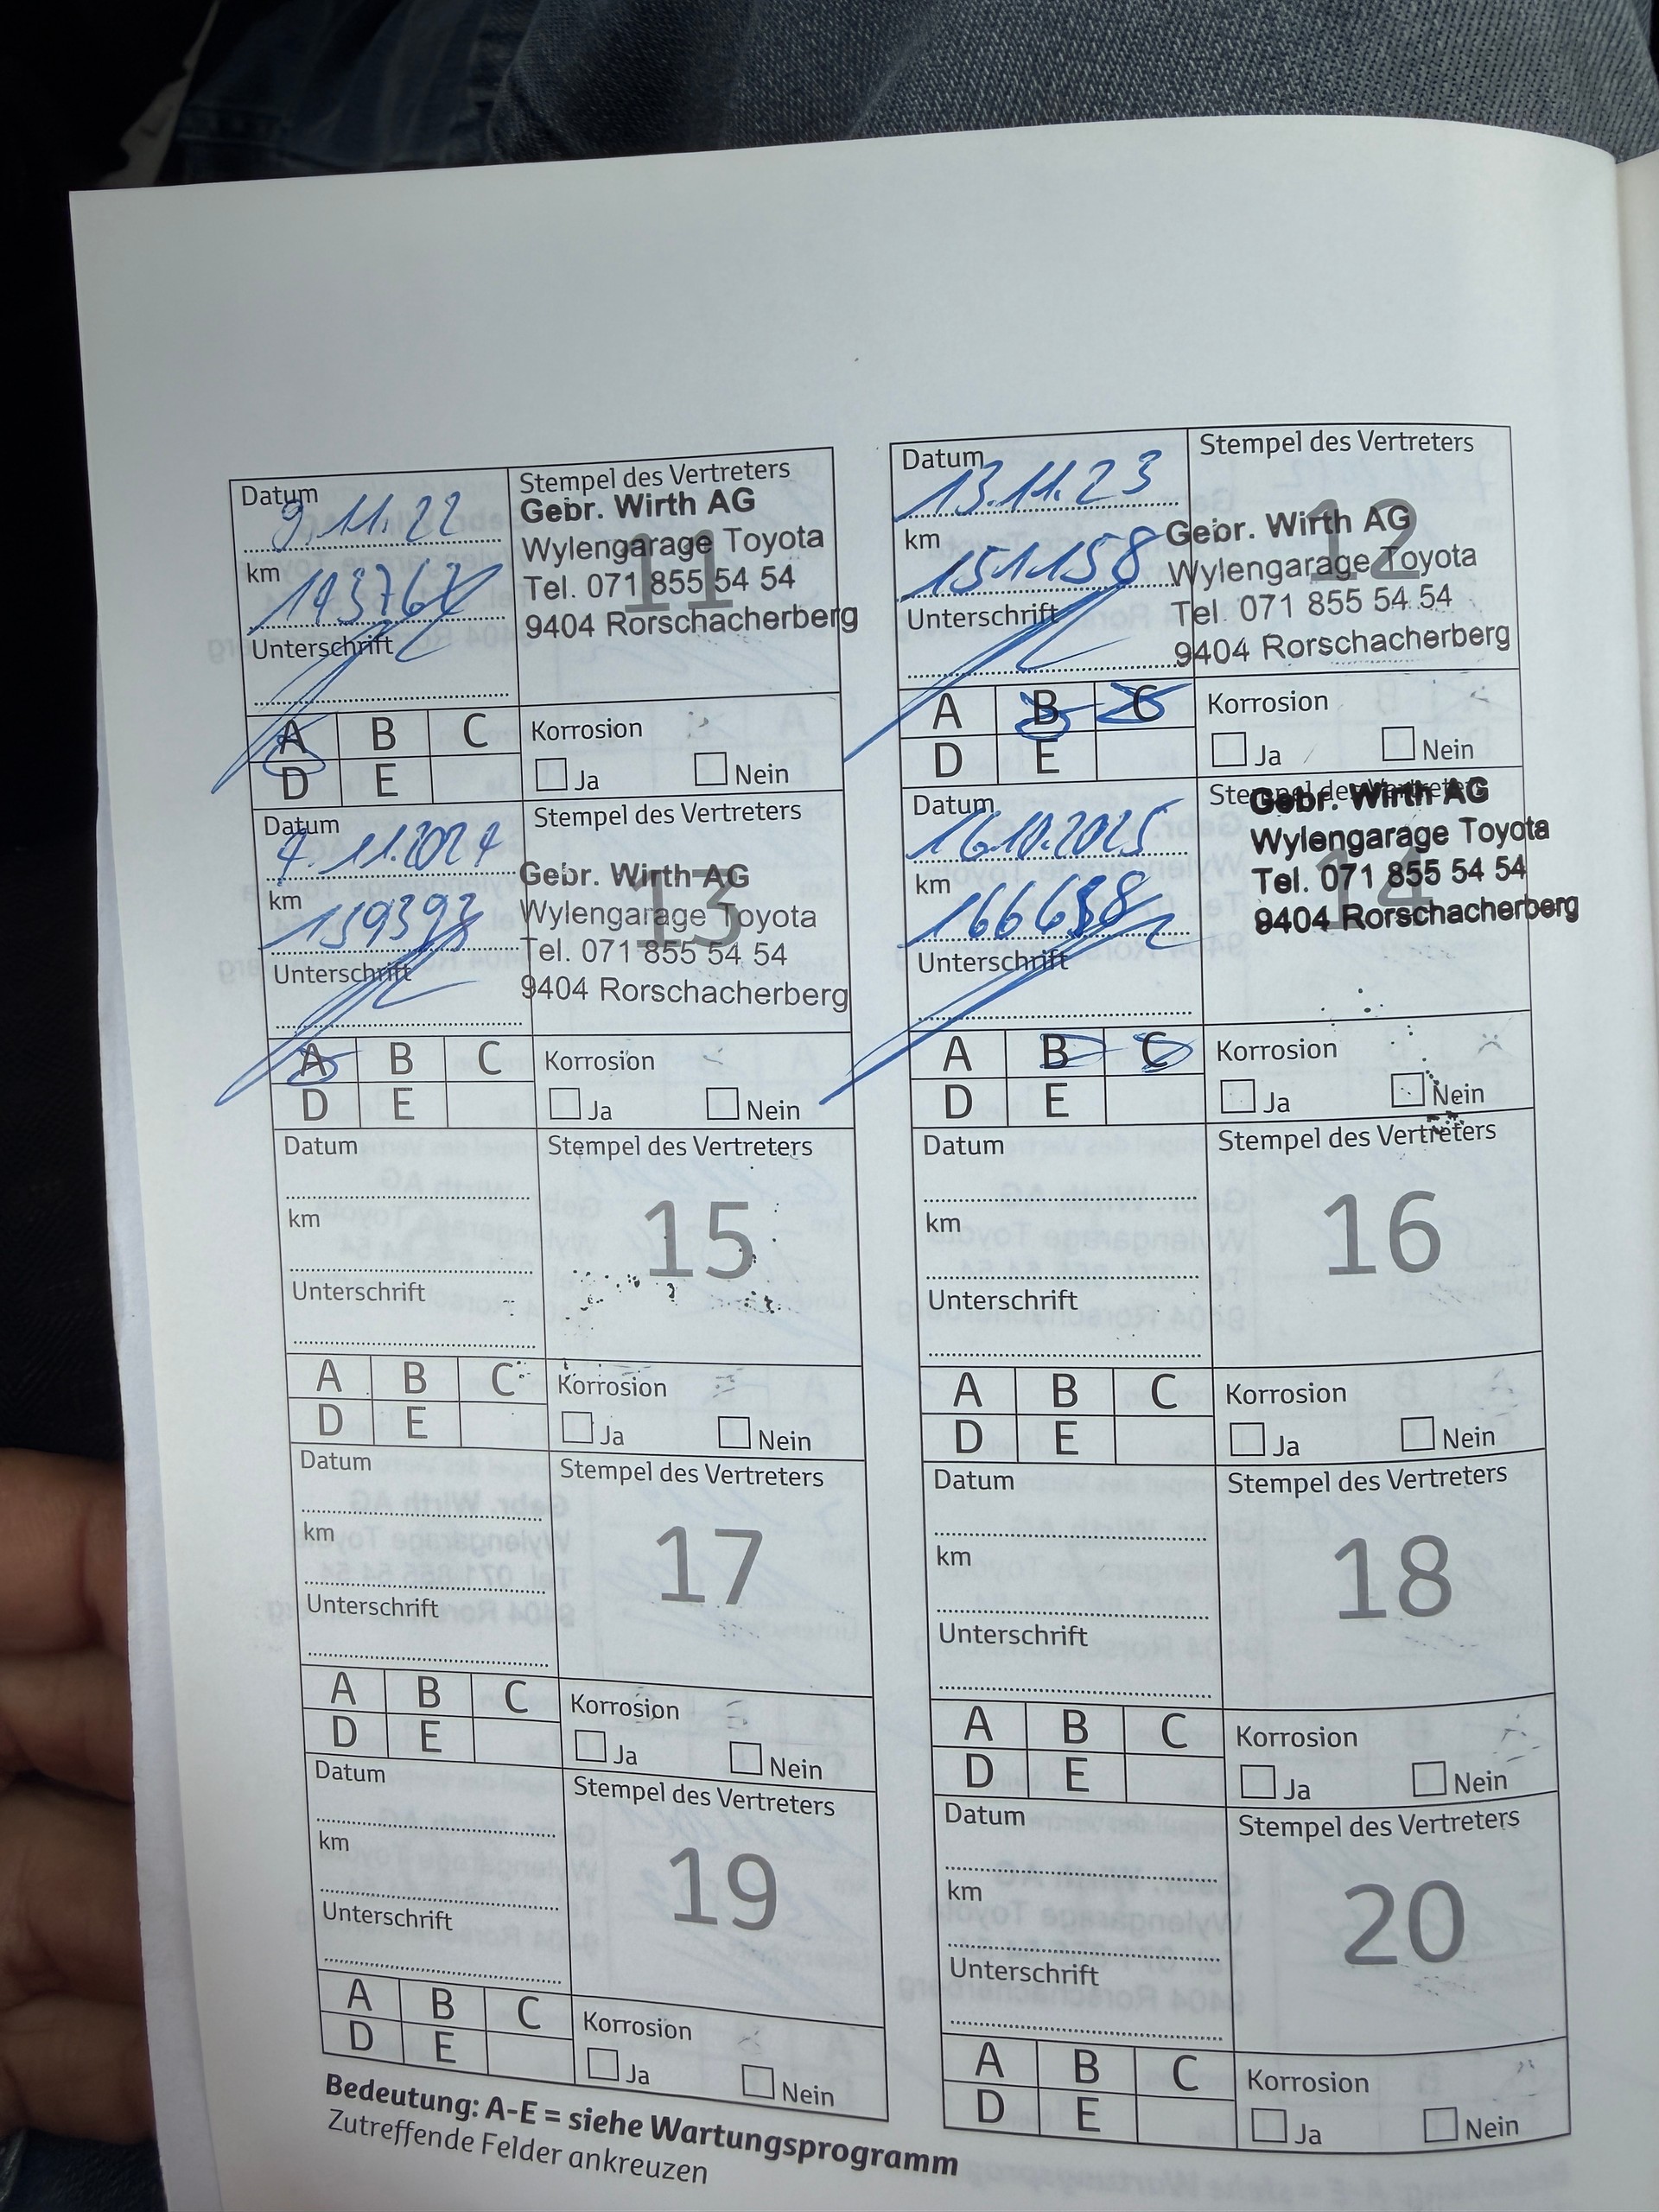 Datum 9.11.22
km
Unterschrift
Stempel des Vertreters
11
Gebr. Wirth AG
Wylengarage Toyota
Tel. 071 855 54 54
9404 Rorschacherberg
A B C
D E
Korrosion
Ja Nein
Datum 13.11.23
km 151158
Unterschrift
Stempel des Vertreters
12
Gebr. Wirth AG
Wylengarage Toyota
Tel. 071 855 54 54
9404 Rorschacherberg
A B C
D E
Korrosion
Ja Nein
Datum
km 159393
Unterschrift
Stempel des Vertreters
13
Gebr. Wirth AG
Wylengarage Toyota
Tel. 071 855 54 54
9404 Rorschacherberg
A B C
D E
Korrosion
Ja Nein
Datum 16.10.2025
km
Unterschrift
Stempel des Vertreters
14
Gebr. Wirth AG
Wylengarage Toyota
Tel. 071 855 54 54
9404 Rorschacherberg
A B C
D E
Korrosion
Ja Nein
Datum
km
Unterschrift
Stempel des Vertreters
15
A B C
D E
Korrosion
Ja Nein
Datum
km
Unterschrift
Stempel des Vertreters
16
A B C
D E
Korrosion
Ja Nein
Datum
km
Unterschrift
Stempel des Vertreters
17
A B C
D E
Korrosion
Ja Nein
Datum
km
Unterschrift
Stempel des Vertreters
18
A B C
D E
Korrosion
Ja Nein
Datum
km
Unterschrift
Stempel des Vertreters
19
A B C
D E
Korrosion
Ja Nein
Datum
km
Unterschrift
Stempel des Vertreters
20
A B C
D E
Korrosion
Ja Nein
Bedeutung: A-E = siehe Wartungsprogramm
Zutreffende Felder ankreuzen